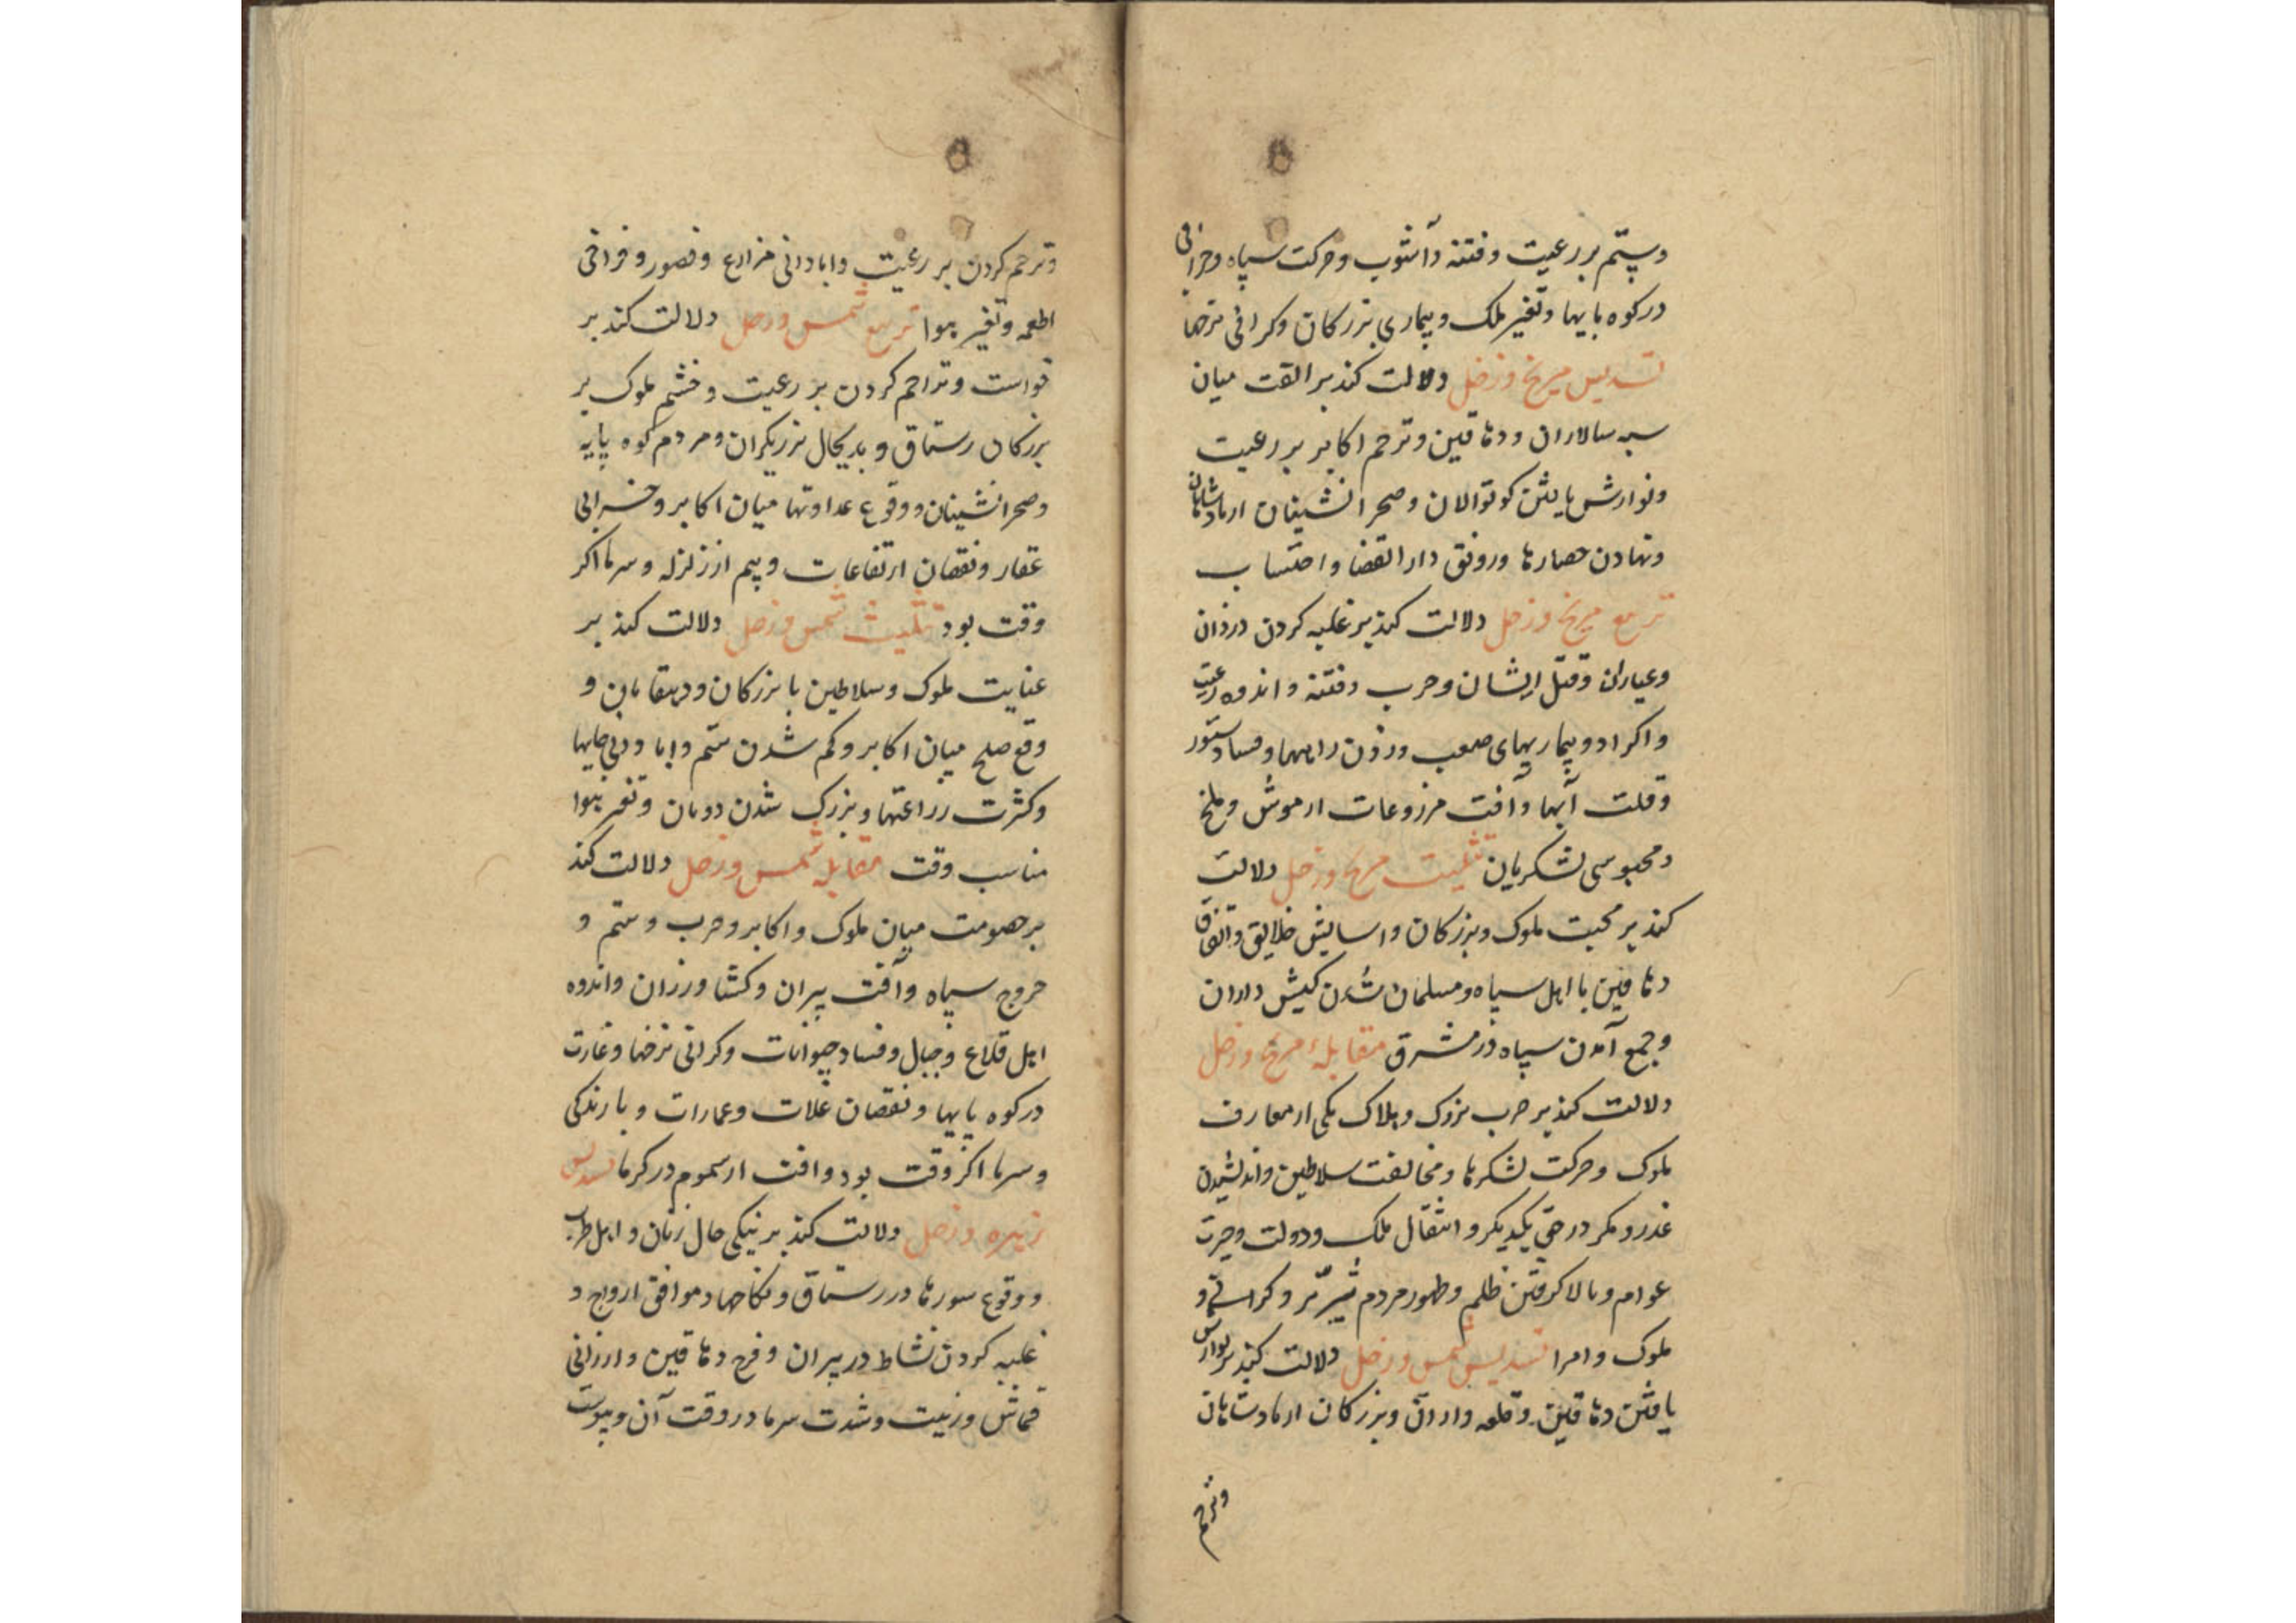 وستم بر رعیت و فتنه و آشوب و حرکت سپاه و خرابی
در کوه پایها و تغیر ملک و بیماری بزرکان و کرانی نرخها
تسدیس مریخ و زحل دلالت کند بر الفت میان
سپه سالاران و دهاقین و ترحم اکابر بر رعیت
و نوازش یافتن کوتوالان و صحرا نشینان از پادشاهان
و نهادن حصارها و رونق دار القضا و احتساب
تربیع مریخ و زحل دلالت کند بر غلبه کردن دزدان
و عیاران و قتل ایشان و حرب و فتنه و اندوه رعیت
و اکراد و بیماریهای صعب و زدن راهها و فساد ستور
و قلت آبها و آفت مزروعات از موش و ملخ
و محبوسی لشکریان تثلیث مریخ و زحل دلالت
کند بر محبت ملوک و بزرکان و اسایش خلایق و اتفاق
دهاقین با اهل سپاه و مسلمان شدن کیش داران
و جمع آمدن سپاه در مشرق مقابلهٔ مریخ و زحل
دلالت کند بر حرب بزرک و هلاک یکی از معارف
ملوک و حرکت لشکرها و مخالفت سلاطین و اندیشیدن
غدر و مکر در حق یکدیکر و انتقال ملک و دولت و حیرت
عوام و بالا کرفتن ظلم و ظهور مردم شریر و
ملوک و امرا تسدیس شمس و زحل دلالت کند بر نوازش
یافتن دهاقین و قلعه داران و بزرکان از پادشاهان
و ترحم
و ترحم کردن بر رعیت و ابادانی مزارع و قصور و فراخی
اطعمه و تغیر هوا تربیع شمس و زحل دلالت کند بر
و تراحم کردن بر رعیت و خشم ملوک بر
بزرکان رستاق و بدیحال برزیکران و مردم کوه پایه
و صحرانشینان و وقوع عداوتها میان اکابر و خرابی
عقار و نقصان ارتفاعات و بیم از زلزله و سرما اکر
وقت بود تثلیث شمس و زحل دلالت کند بر
عنایت ملوک و سلاطین با بزرکان و دهقانان و
وقع صلح میان اکابر و کم شدن ستم و ابادنی جایها
و کثرت زراعتها و بزرک شدن دوبان و تغیر هوا
مناسب وقت مقابله شمس و زحل دلالت کند
بر خصومت میان ملوک و اکابر و حرب و ستم و
خروج سپاه و آفت پیران و کشاورزان و اندوه
اهل قلاع و جبال و فساد حیوانات و کرانی نرخها و غارت
در کوه پایها و نقصان غلات و عمارات و بارندکی
و سرما اکر وقت بود و افت از سموم در کرما تسدیس
زهره و زحل دلالت کند بر نیکی حال زنان و اهل طرب
و وقوع سورها در رستاق و نکاحها و موافق ازواج و
غلبه کردن نشاط در پیران و فرح دهاقین و ارزانی
قماش و زینت و شدت سرما در وقت آن و یبوست